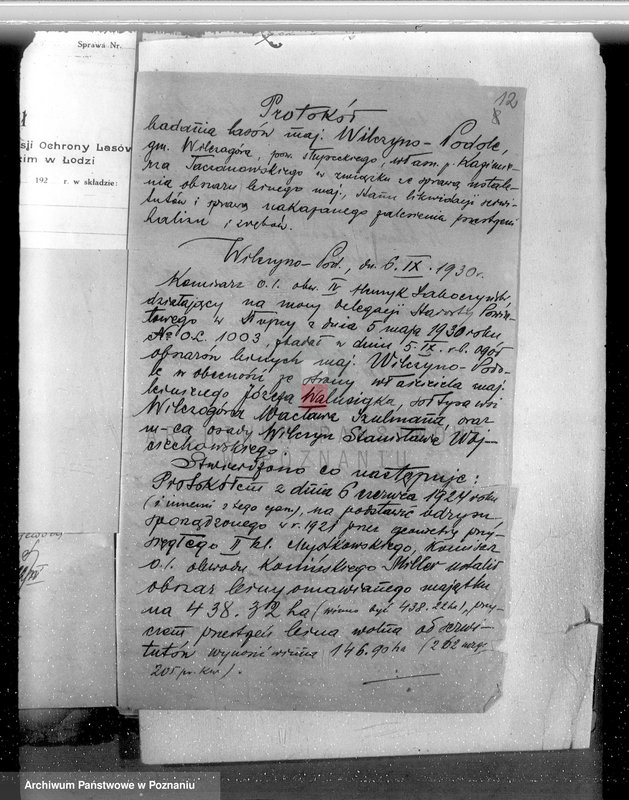 Sprawa Nr.
sji Ochrony Lasów
im w Łodzi
192 r. w składzie:
12
Protokół
badania lasów maj. Wilczyno-Podole,
gm. Wilczagóra, pow. słupeckiego, własn. p. Kazimie-
rza Taczanowskiego w związku ze sprawą ustale-
nia obszaru leśnego maj., stanu likwidacji serwi-
tutów i sprawą nakazanego zalesienia przestrzeni
halizn i zrębów.
Wilczyno-Pod., dn. 6.IX.1930 r.
Komisarz O.L. obw. IV Henryk
działający na mocy delegacji Starosty Powia-
towego w Słupcy z dnia 5 maja 1930 roku
№ O.L. 1003, zbadał w dniu 5.IX. r.b. ogół
obszarów leśnych maj. Wilczyno-Podo-
le w obecności ze strony właściciela maj.
leśniczego Józefa Walusiaka, sołtysa wsi
Wilczogóra Wacława Szulmana, oraz
m-ca osady Wilczyn Stanisława Woj-
ciechowskiego.
W POZNANIU
Stwierdzono co następuje:
Protokółem z dnia 6 czerwca 1924 roku
(i innemi z tego czasu), na podstawie
sporządzonego w r. 1921 przez geometrę przy-
sięgłego II kl. Myszkowskiego, Komisarz
O.L. obwodu Konińskiego Miller ustalił
obszar leśny omawianego majątku
na 438.32 ha (winno być 438.22 ha), przy-
czem przestrzeń leśna wolna od serwi-
tutów wynosić winna 146.90 ha (262 morg.
205 pr. kw.).
Archiwum Państwowe w Poznaniu